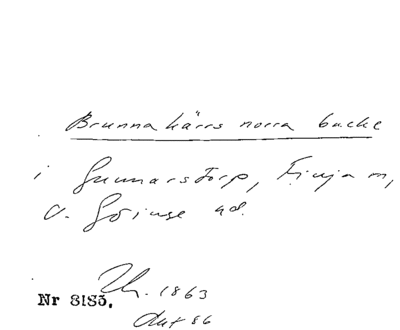 Brunnakärrs norra backe
i Gunnarstorp, Finja sn,
V. Göinge hd.
Nr 8183. Uh. 1863
Akt 86